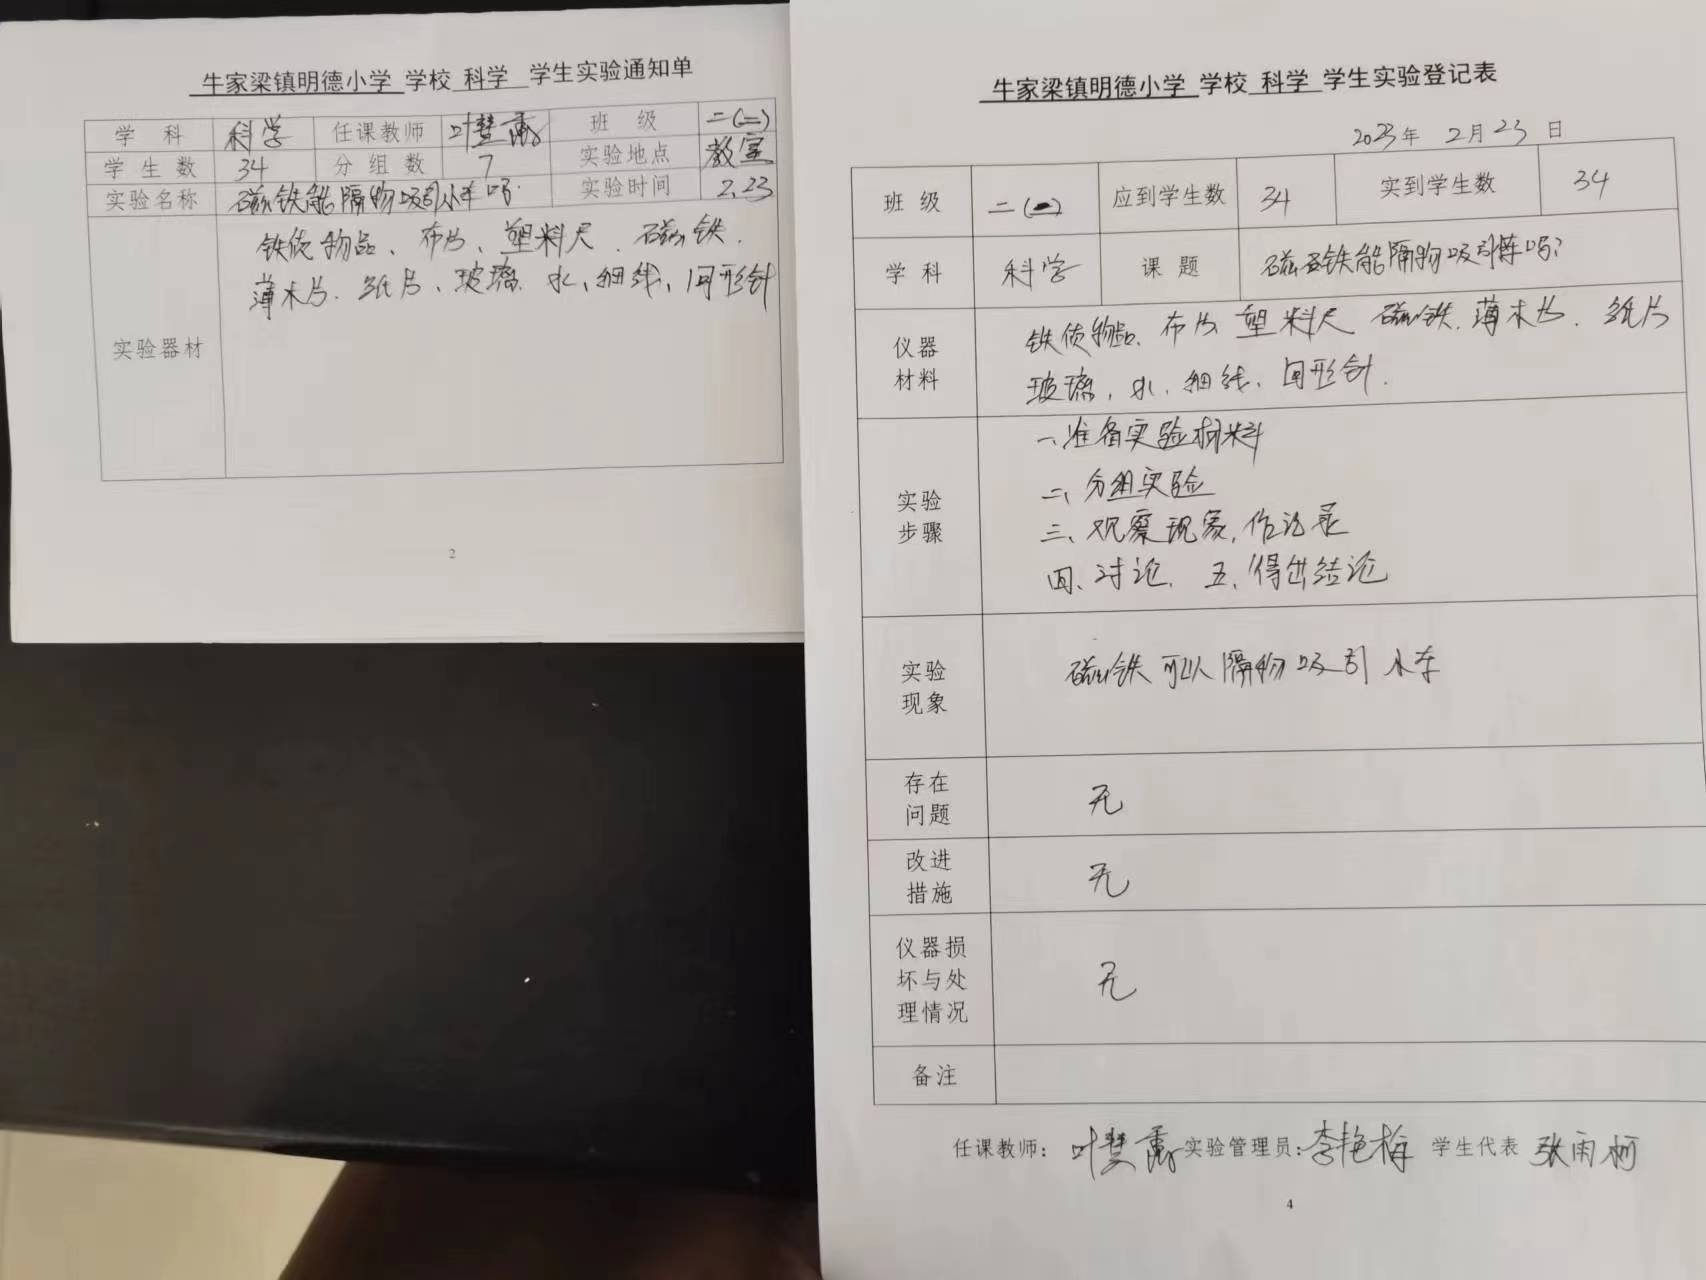 牛家梁镇明德小学 学校 科学 学生实验通知单
学 科 科学 任课教师 叶慧 班 级 二(二)
学生数 34 分组数 7 实验地点 教室
实验名称 磁铁能隔物吸引小车吗. 实验时间 2.23
实验器材
铁质物品、布片、塑料尺、磁铁.
薄木片、纸片、玻璃、水、细线、回形针
2
牛家梁镇明德小学 学校 科学 学生实验登记表
2023年 2月23日
班 级 二() 应到学生数 34 实到学生数 34
学 科 科学 课 题 磁铁能隔物吸引吗?
仪器材料
铁质物品、布片 塑料尺 磁铁、薄木片、纸片
玻璃,水,细线、回形针.
实验步骤
一、准备实验材料
二、分组实验
三、观察现象,作记录
四、讨论. 五、得出结论
实验现象 磁铁可以隔物吸引小车
存在问题 无
改进措施 无
仪器损坏与处理情况 无
备注
任课教师: 叶慧 实验管理员: 李艳梅 学生代表 张雨柯
4